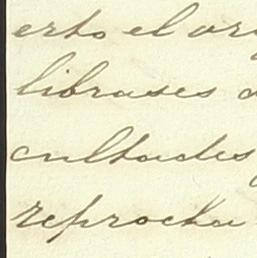 erto el org
librases a
cultades
reprocha